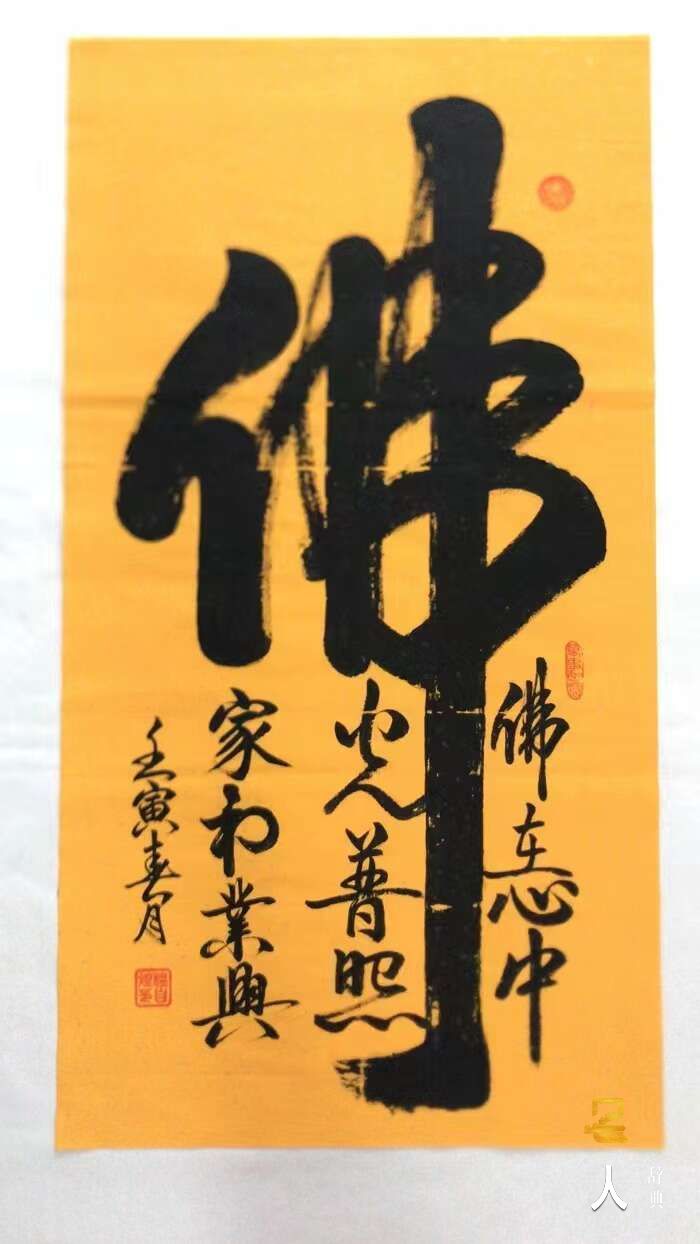 佛
佛在心中
光普照
家和業興
壬寅春月
人
辞典